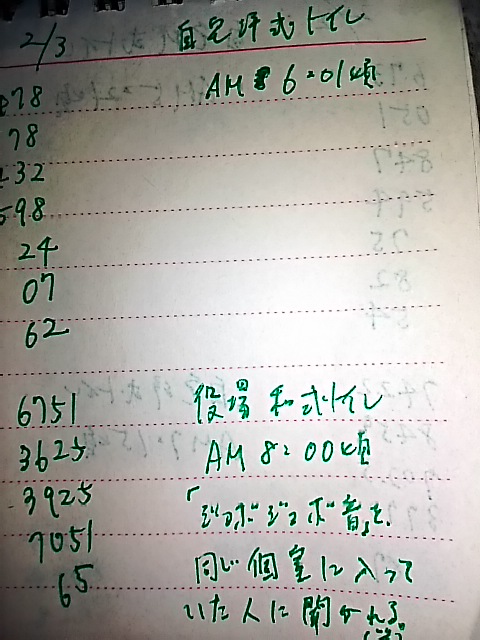 2/3 自宅洋式トイレ
78 AM 6:01頃
78
32
598
24
07
62
6751 役場 和式トイレ
3625 AM 8:00頃
3925 「ジョボジョボ音を、
7051 同じ個室に入って
65 いた人に聞かれる。